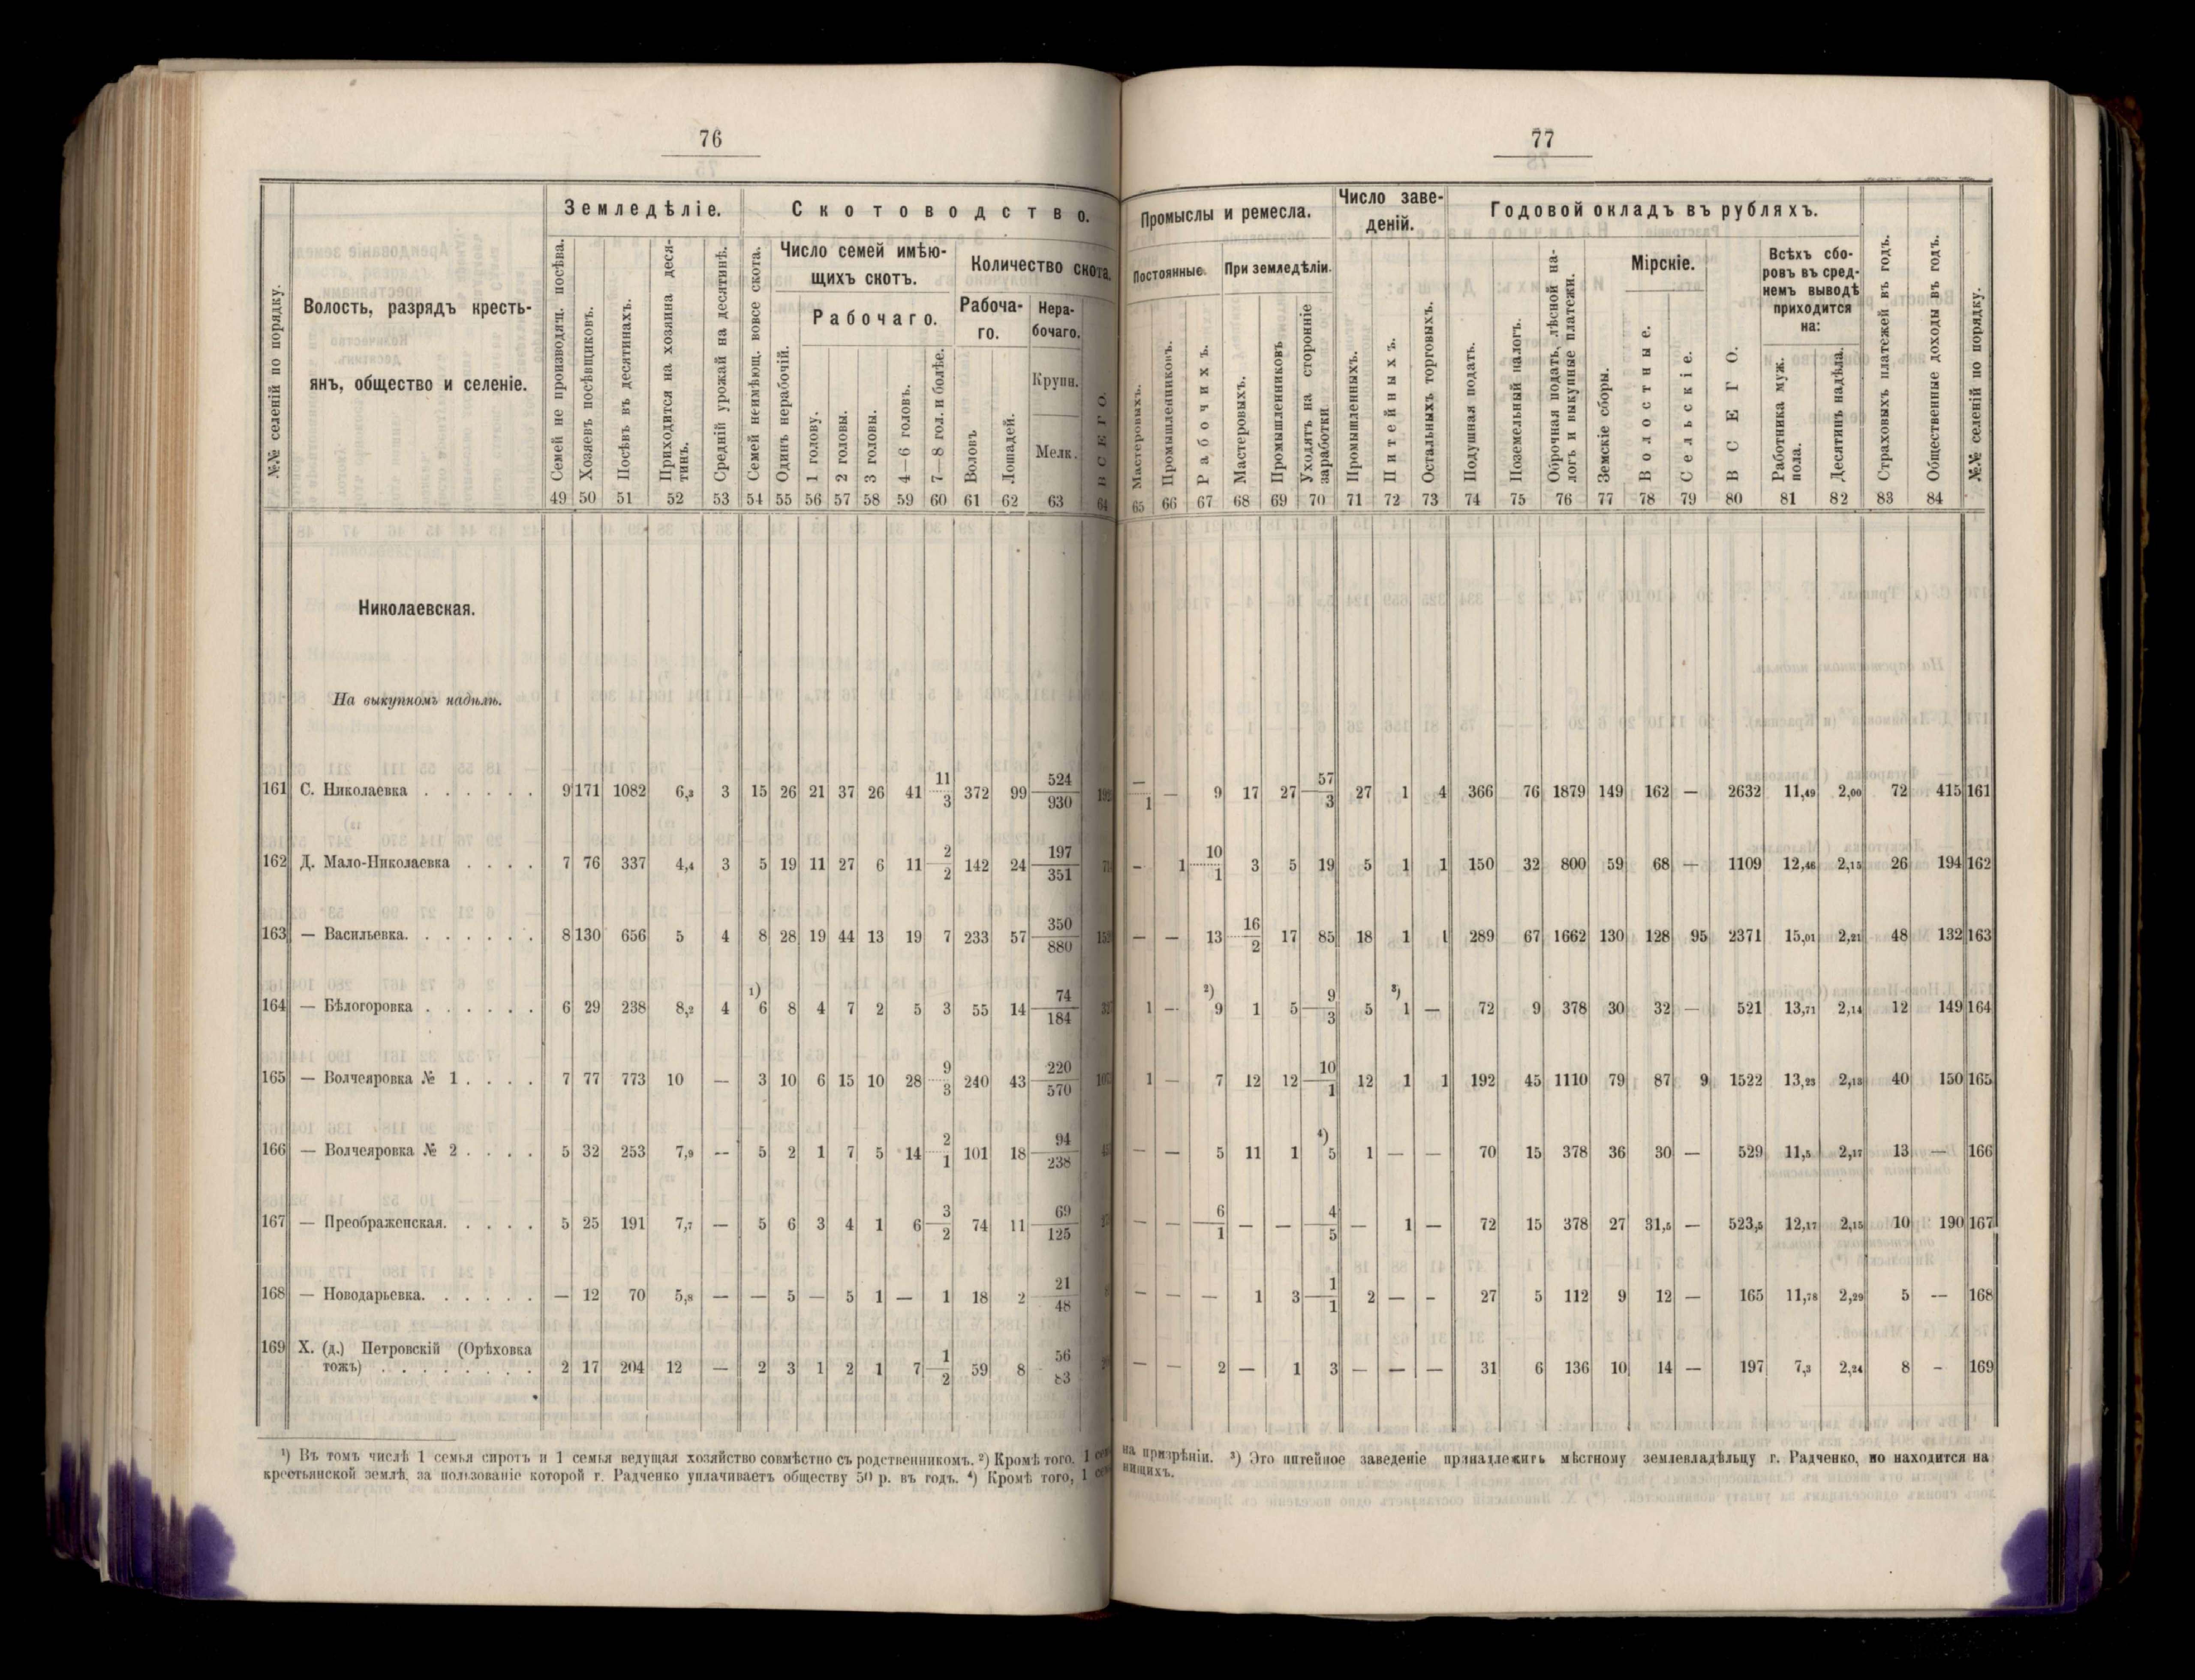 76
Земледѣліе. Скотоводство.
№№ селеній по порядку.
Волость, разрядъ кресть-
янъ, общество и селеніе.
Семей не производящ. посѣва.
Хозяевъ посѣвщиковъ.
Посѣвъ въ десятинахъ.
Приходится на хозяина деся-
тинъ.
Средній урожай на десятинѣ.
Семей неимѣющ. вовсе скота.
Число семей имѣю-
щихъ скотъ.
Рабочаго.
Одинъ нерабочій.
1 голову.
2 головы.
3 головы.
4—6 головъ.
7—8 гол. и болѣе.
Количество скота.
Рабоча-
го.
Воловъ
Лошадей.
Нера-
бочаго.
Крупн.
Мелк.
ВСЕГО.
49 50 51 52 53 54 55 56 57 58 59 60 61 62 63 64
Николаевская.
На выкупномъ надѣлѣ.
161 С. Николаевка . . . . . . 9 171 1082 6,3 3 15 26 21 37 26 41 11/3 372 99 524/930
162 Д. Мало-Николаевка . . . . 7 76 337 4,4 3 5 19 11 27 6 11 2/2 142 24 197/351
163 — Васильевка. . . . . . . 8 130 656 5 4 8 28 19 44 13 19 7 233 57 350/880
164 — Бѣлогоровка . . . . . . 6 29 238 8,2 4 ¹) 6 8 4 7 2 5 3 55 14 74/184
165 — Волчеяровка № 1 . . . . 7 77 773 10 — 3 10 6 15 10 28 9/3 240 43 220/570
166 — Волчеяровка № 2 . . . . 5 32 253 7,9 — 5 2 1 7 5 14 2/1 101 18 94/238
167 — Преображенская. . . . . 5 25 191 7,7 — 5 6 3 4 1 6 3/2 74 11 69/125
168 — Новодарьевка. . . . . . — 12 70 5,8 — — 5 — 5 1 — 1 18 2 21/48
169 Х. (д.) Петровскій (Орѣховка
тожъ) . . . . . . . . 2 17 204 12 — 2 3 1 2 1 7 1/2 59 8 56/83
¹) Въ томъ числѣ 1 семья сиротъ и 1 семья ведущая хозяйство совмѣстно съ родственникомъ. ²) Кромѣ того, 1
крестьянской землѣ, за пользованіе которой г. Радченко уплачиваетъ обществу 50 р. въ годъ. ⁴) Кромѣ того, 1
77
Промыслы и ремесла. Число заве-
деній. Годовой окладъ въ рубляхъ.
Постоянные. При земледѣліи.
Мастеровыхъ.
Промышленниковъ.
Рабочихъ.
Мастеровыхъ.
Промышленниковъ
Уходятъ на сторонніе
заработки
Промышленныхъ.
Питейныхъ.
Остальныхъ торговыхъ.
Подушная подать.
Поземельный налогъ.
Оброчная подать, лѣсной на-
логъ и выкупные платежи.
Земскіе сборы.
Мірскіе.
Волостные.
Сельскіе.
ВСЕГО.
Всѣхъ сбо-
ровъ въ сред-
немъ выводѣ
приходится
на:
Работника муж.
пола.
Десятинъ надѣла.
Страховыхъ платежей въ годъ.
Общественные доходы въ годъ.
№№ селеній по порядку.
65 66 67 68 69 70 71 72 73 74 75 76 77 78 79 80 81 82 83 84
—/1 — 9 17 27 57/3 27 1 4 366 76 1879 149 162 — 2632 11,49 2,00 72 415 161
— 1 10/1 3 5 19 5 1 1 150 32 800 59 68 — 1109 12,46 2,15 26 194 162
— — 13 16/2 17 85 18 1 1 289 67 1662 130 128 95 2371 15,01 2,21 48 132 163
1 — ²) 9 1 5 9/3 5 ³) 1 — 72 9 378 30 32 — 521 13,71 2,14 12 149 164
1 — 7 12 12 10/1 12 1 1 192 45 1110 79 87 9 1522 13,23 2,13 40 150 165
— — 5 11 1 ⁴) 5 1 — — 70 15 378 36 30 — 529 11,5 2,17 13 — 166
— — 6/1 — — 4/5 — 1 — 72 15 378 27 31,5 — 523,5 12,17 2,15 10 190 167
— — — 1 3 1/1 2 — — 27 5 112 9 12 — 165 11,78 2,29 5 — 168
— — 2 — 1 3 — — — 31 6 136 10 14 — 197 7,3 2,24 8 — 169
на призрѣніи. ³) Это питейное заведеніе принадлежитъ мѣстному землевладѣльцу г. Радченко, но находится на
нищихъ.